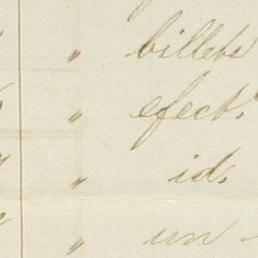 " billets
" efect.
" id.
" un